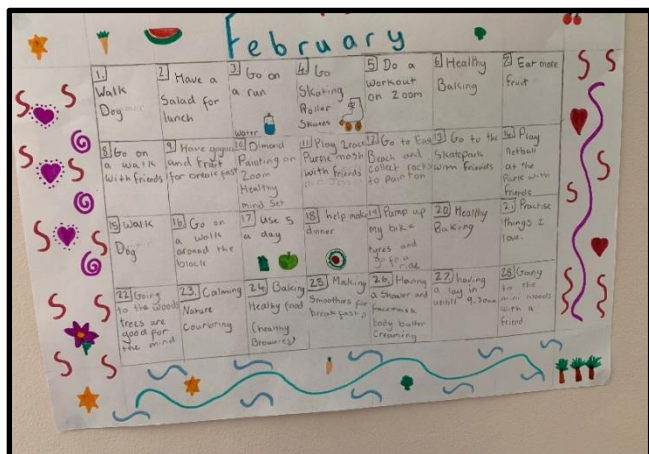 February
1.
Walk
Dog
2 Have a
Salad for
lunch
3 Go on
a run
Water
4 Go
Skating
Roller
Skates
5 Do a
workout
on Zoom
6 Healthy
Baking
Eat more
fruit
8 Go on
a walk
with friends
9 Have
and fruit
for
10 Dimond
Painting on
Zoom
Healthy
mind Set
11 Play
Purple mash
with friends
12 Go to
Beach and
collect rocks
to paint on
13 Go to the
Skatepark
with friends
14 Play
Netball
at the
with
friends
15 Walk
Dog
16 Go on
a walk
around the
block
17 Use 5
a day
18 help make
dinner
19 Pump up
my bike
tyres and
go for a
ride
20 Healthy
Baking
21 Practise
things I
love.
22 Going
to the woods
trees are
good for
the mind
23. Calming
Nature
24. Baking
Healthy food
(healthy
Brownies)
25. Making
Smoothies for
breakfast
26. Having
a shower and
facemask
body butter
Creaming
27. having
a lay in
28 Going
to the
mini woods
with a
friend